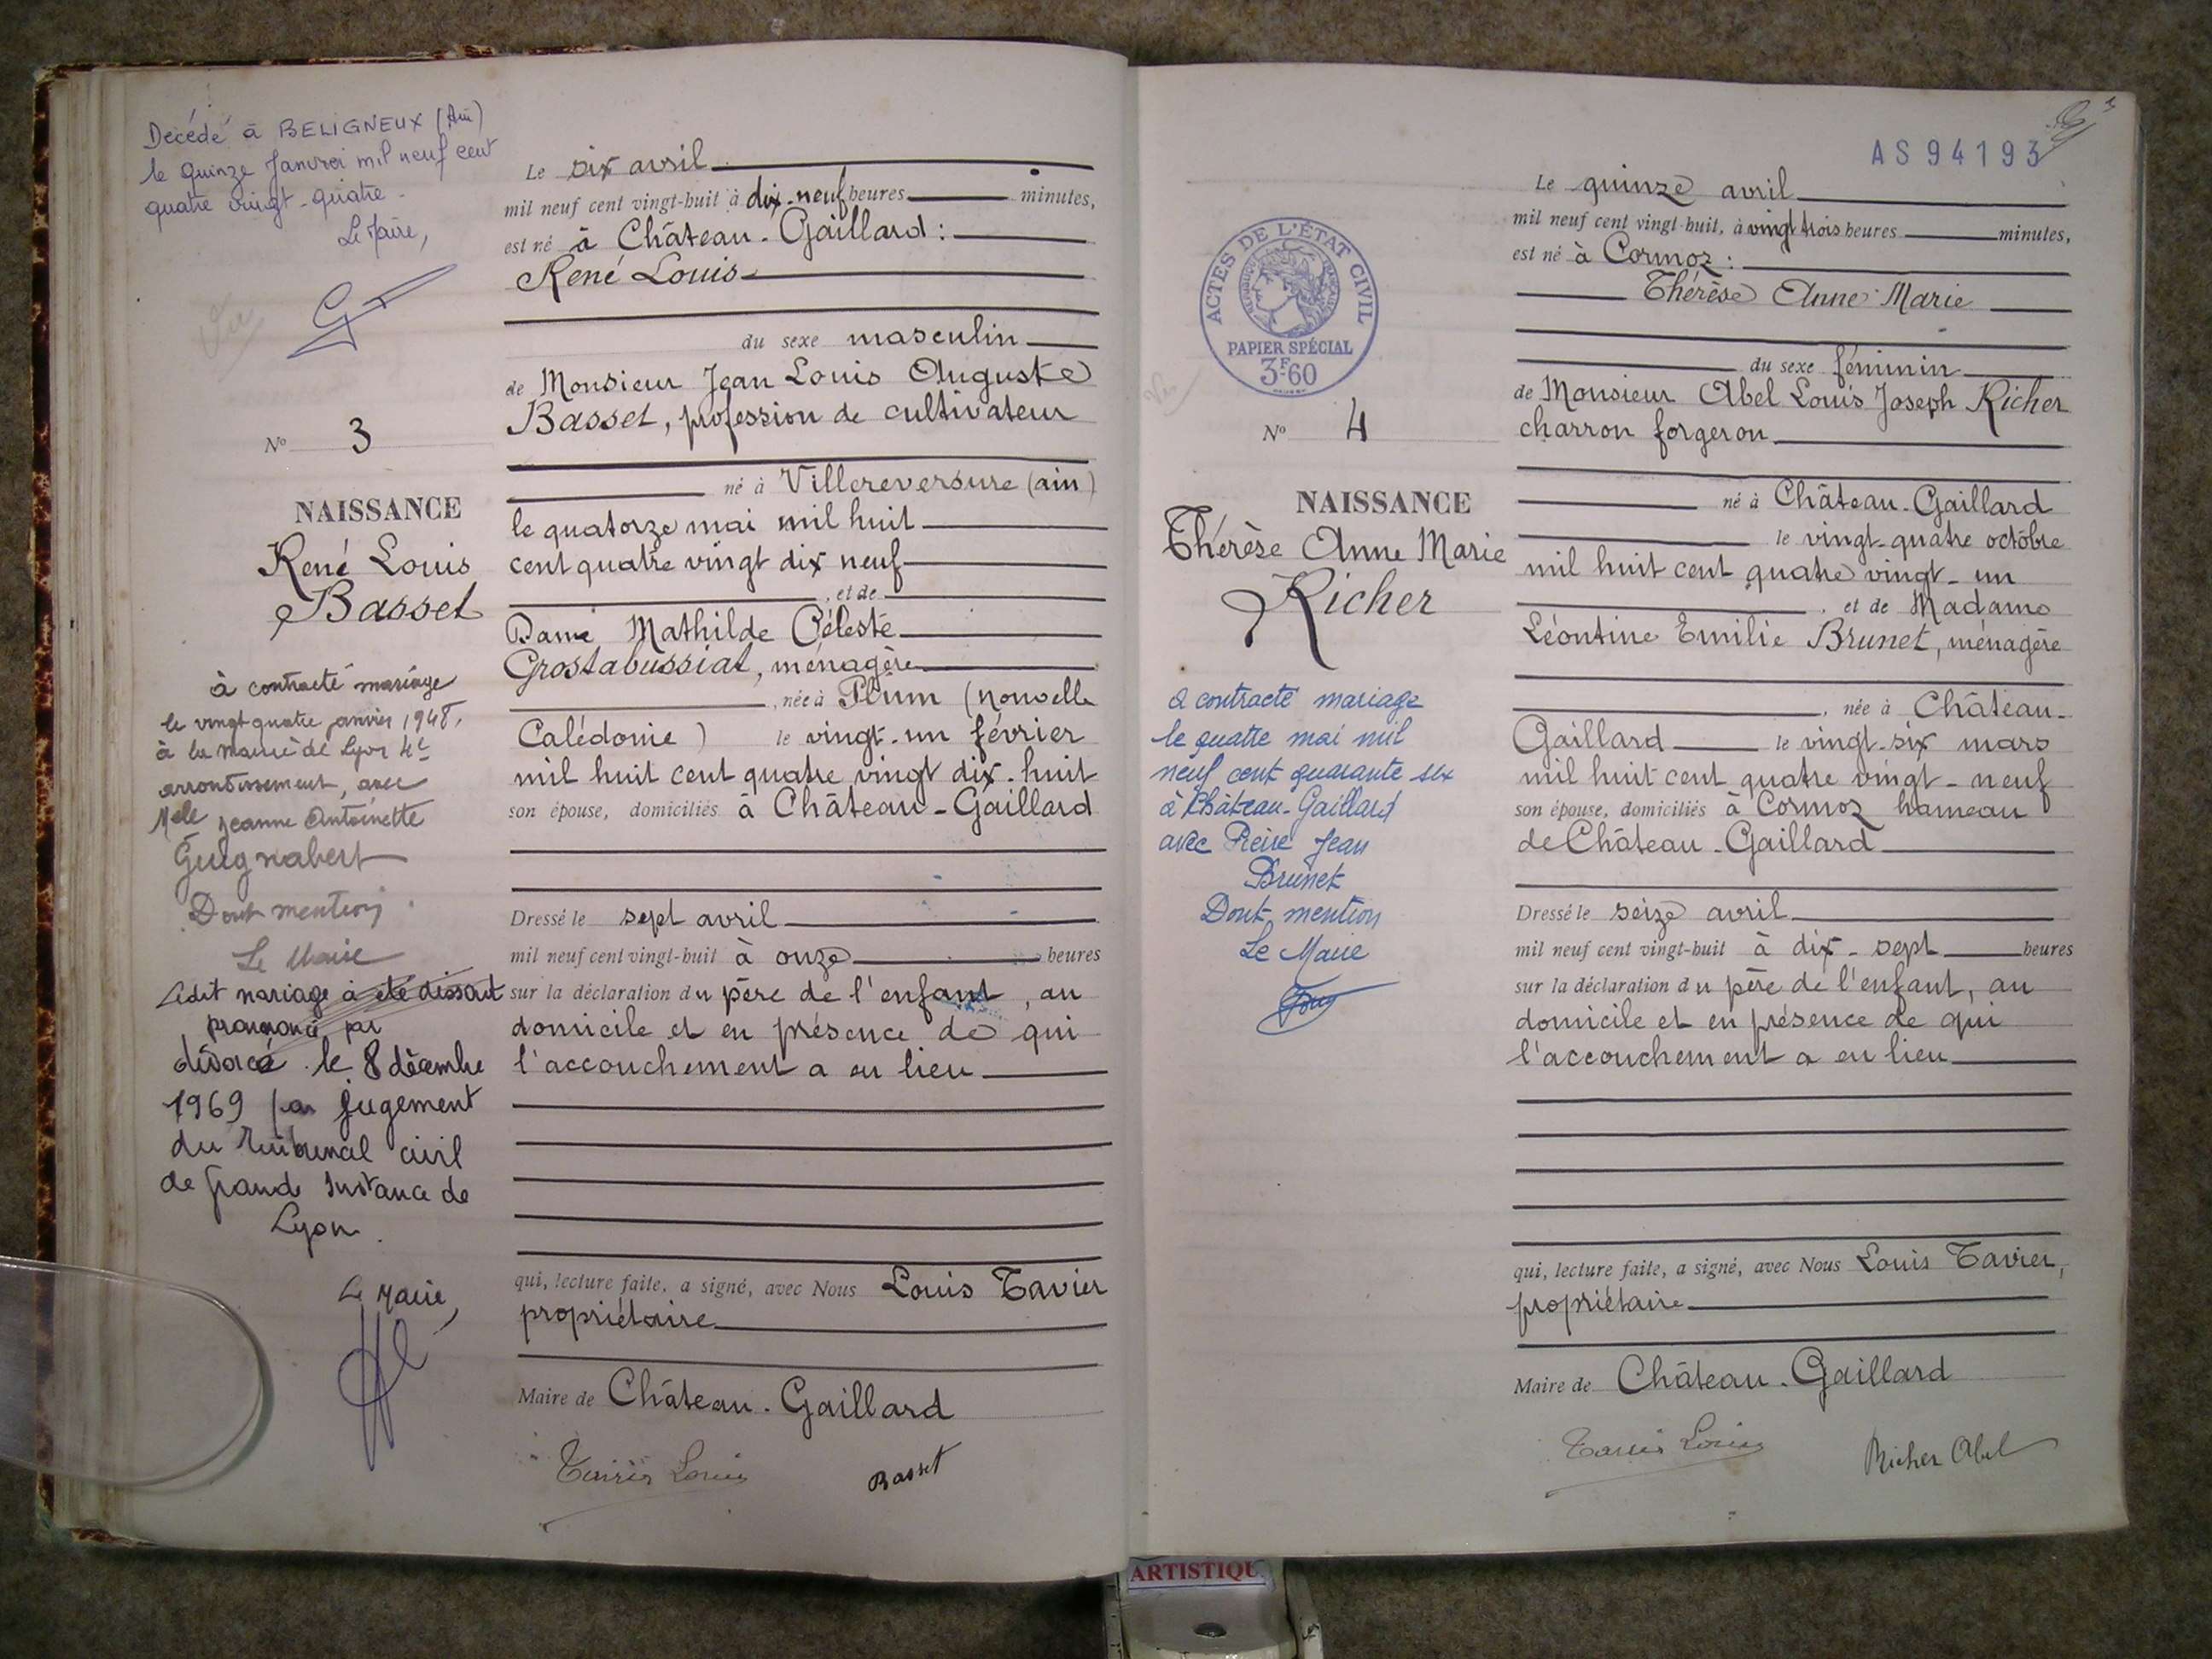 Decédé à BELIGNEUX (Ain)
le quinze Janvier mil neuf cent
quatre vingt-quatre.
Le Maire,
Vu
N° 3
NAISSANCE
René Louis
Basset
à contracté mariage
le vingt quatre janvier 1948,
à la mairie de Lyon 4e
arrondissement, avec
Melle Jeanne Antoinette
Guignabert
Dont mention
Le Maire
Ledit mariage a été dissout
prononcé par
divorce le 8 décembre
1969 par jugement
du tribunal civil
de Grande Instance de
Lyon.
Le Maire,
Le six avril
mil neuf cent vingt-huit à dix-neuf heures minutes,
est né à Château-Gaillard :
René Louis
du sexe masculin
de Monsieur Jean Louis Auguste
Basset, profession de cultivateur
né à Villereversure (ain)
le quatorze mai mil huit
cent quatre vingt dix neuf
, et de
Dame Mathilde Céleste
Grostabussiat, ménagère
, née à Plum (nouvelle
Calédonie) le vingt-un février
mil huit cent quatre vingt dix-huit
son épouse, domiciliés à Château-Gaillard
Dressé le sept avril
mil neuf cent vingt-huit à onze heures
sur la déclaration du père de l'enfant, au
domicile et en présence de qui
l'accouchement a eu lieu
qui, lecture faite, a signé, avec Nous Louis Tavier
propriétaire
Maire de Château-Gaillard
Tavier Louis Basset
AS94193
3
ACTES DE L'ÉTAT CIVIL
RÉPUBLIQUE FRANÇAISE
PAPIER SPÉCIAL
3F60
Vu
N° 4
NAISSANCE
Thérèse Anne Marie
Richer
a contracté mariage
le quatre mai mil
neuf cent quarante six
à Château-Gaillard
avec Pierre Jean
Brunet
Dont mention
Le Maire
Le quinze avril
mil neuf cent vingt-huit, à vingt trois heures minutes,
est né à Cormoz :
Thérèse Anne Marie
du sexe féminin
de Monsieur Abel Louis Joseph Richer
charron forgeron
né à Château-Gaillard
le vingt-quatre octobre
mil huit cent quatre vingt-un
, et de Madame
Léontine Emilie Brunet, ménagère
, née à Château-
Gaillard le vingt-six mars
mil huit cent quatre vingt-neuf
son épouse, domiciliés à Cormoz hameau
de Château-Gaillard
Dressé le seize avril
mil neuf cent vingt-huit à dix-sept heures
sur la déclaration du père de l'enfant, au
domicile et en présence de qui
l'accouchement a eu lieu
qui, lecture faite, a signé, avec Nous Louis Tavier,
propriétaire
Maire de Château-Gaillard
Tavier Louis Richer Abel
ARTISTIQU